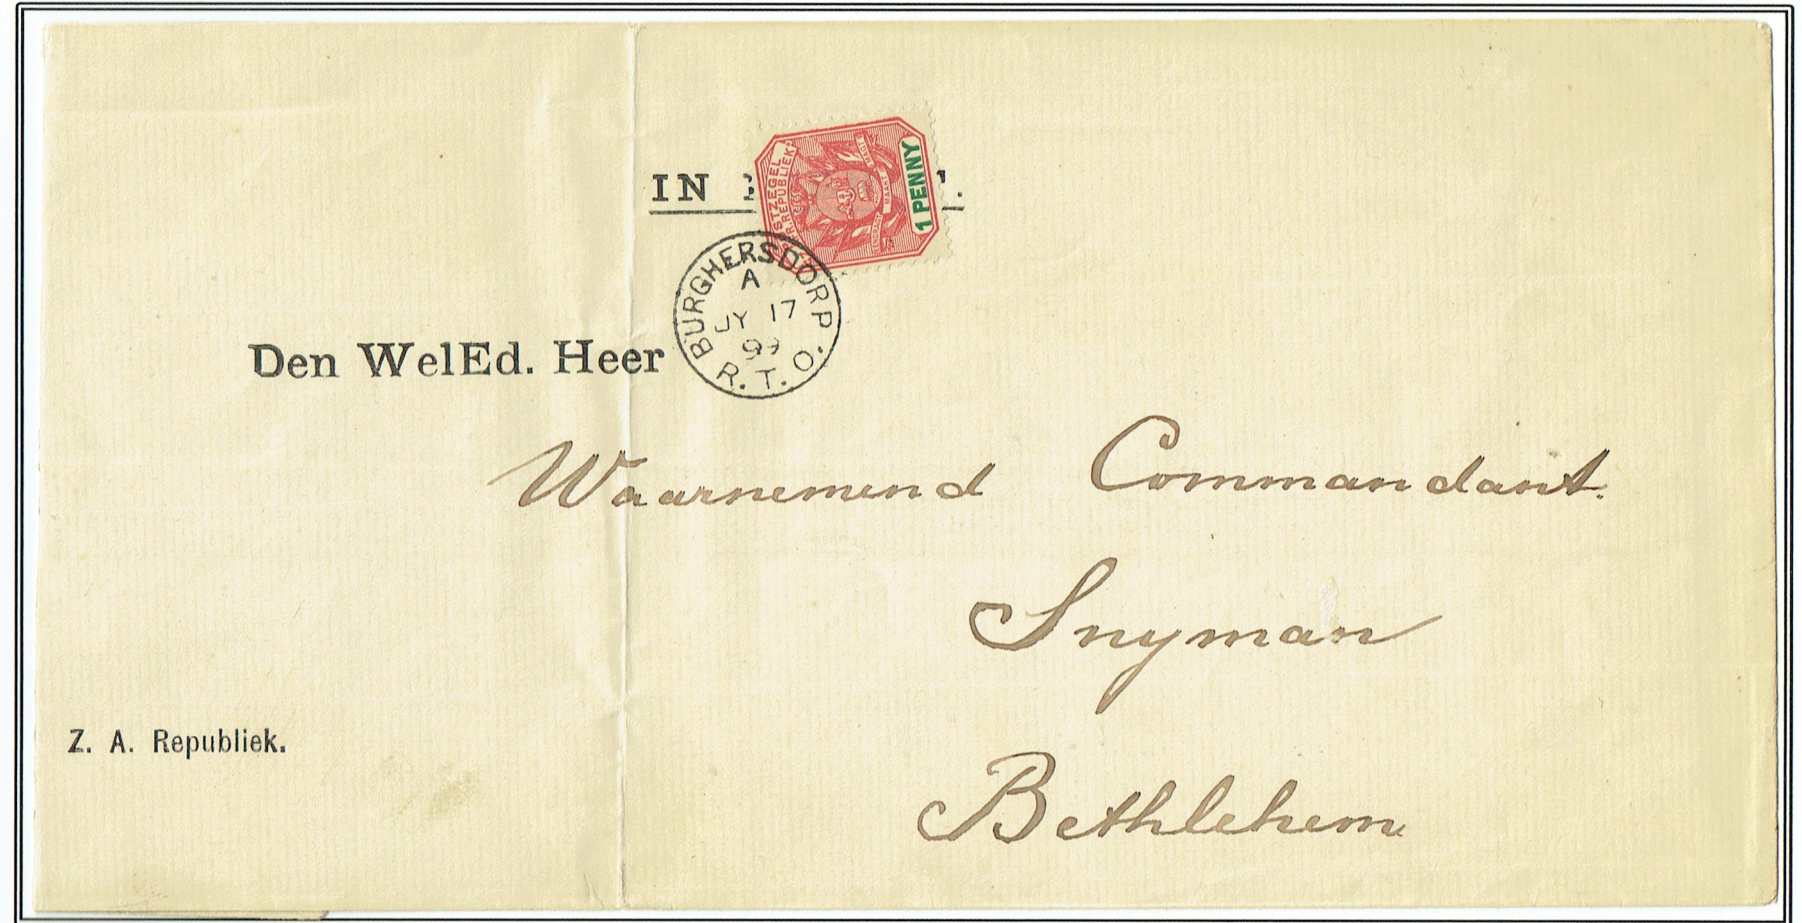 IN
POSTZEGEL
Z. AFR. REPUBLIEK.
1 PENNY
BURGHERSDORP
A
JY 17
99
R. T. O.
Den WelEd. Heer
Waarnemend Commandant.
Snyman
Bethlehem
Z. A. Republiek.